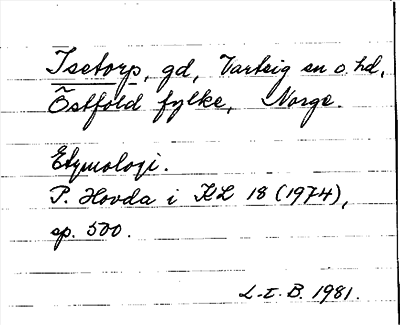 Isetorp, gd, Varteig sn o. hd,
Östfold fylke, Norge.
Etymologi.
P. Hovda i KL 18 (1974),
sp. 500.
L-E. B. 1981.